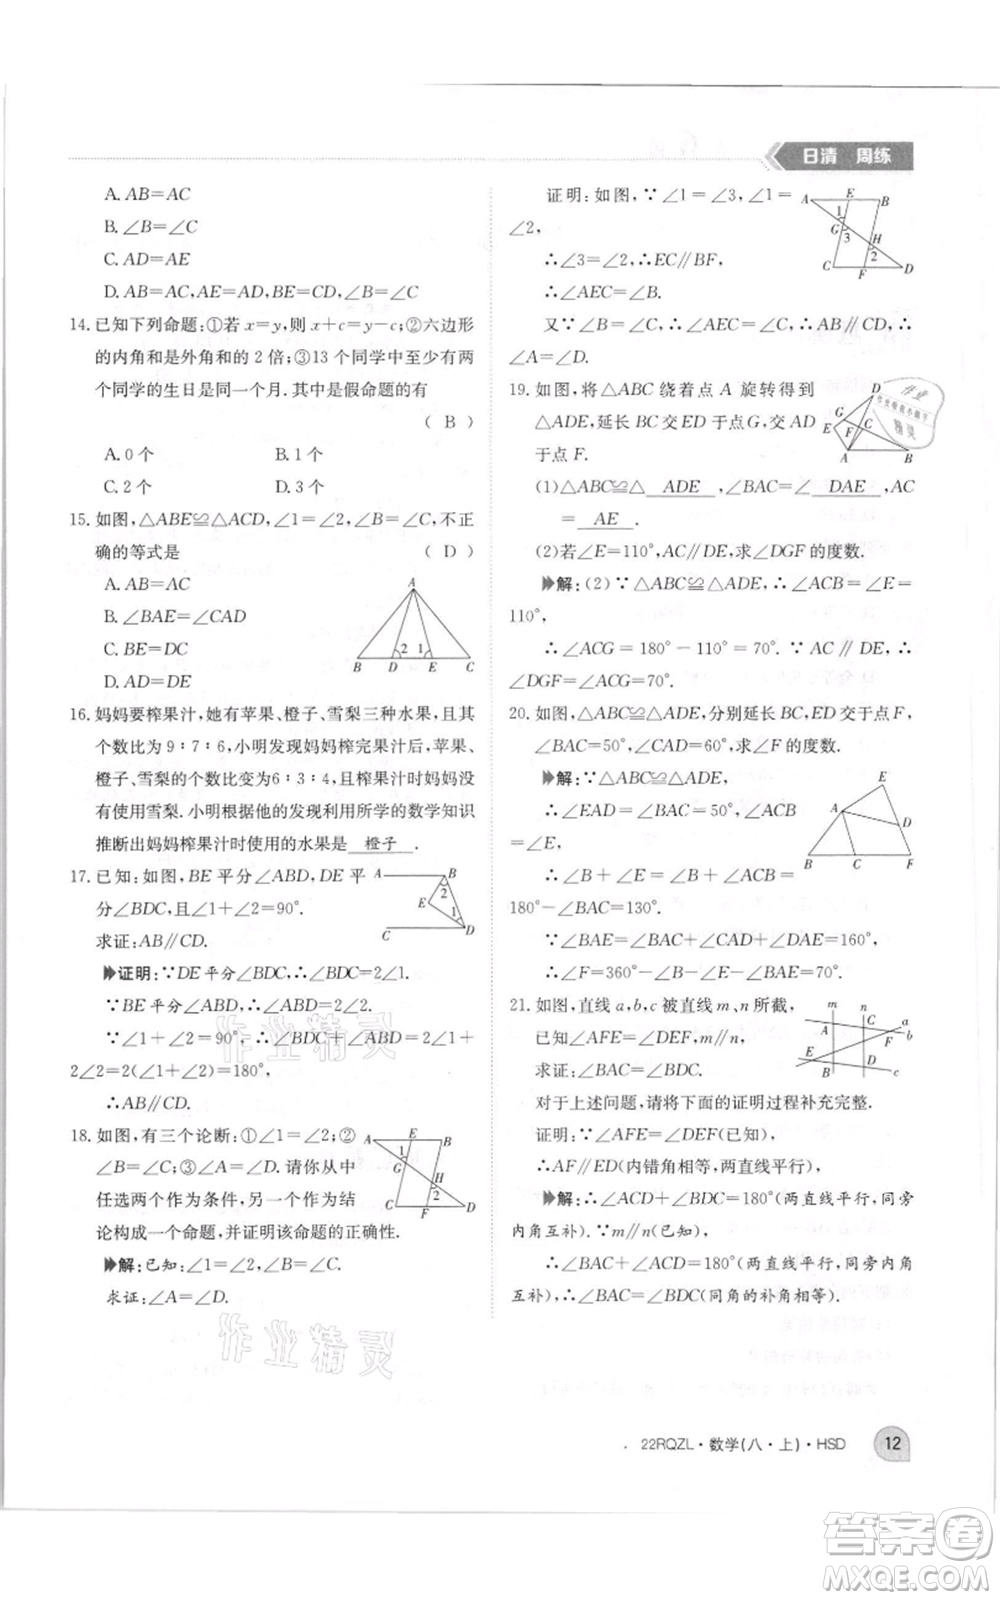 日清 周练
A. AB=AC
B. ∠B=∠C
C. AD=AE
D. AB=AC,AE=AD,BE=CD,∠B=∠C
14. 已知下列命题:①若 x=y,则 x+c=y-c;②六边形
的内角和是外角和的 2 倍;③13 个同学中至少有两
个同学的生日是同一个月. 其中是假命题的有
( B )
A. 0 个 B. 1 个
C. 2 个 D. 3 个
15. 如图,△ABE≌△ACD,∠1=∠2,∠B=∠C,不正
确的等式是 ( D )
A. AB=AC
B. ∠BAE=∠CAD
C. BE=DC
D. AD=DE
A
2 1
B D E C
16. 妈妈要榨果汁,她有苹果、橙子、雪梨三种水果,且其
个数比为 9∶7∶6,小明发现妈妈榨完果汁后,苹果、
橙子、雪梨的个数比变为 6∶3∶4,且榨果汁时妈妈
没有使用雪梨. 小明根据他的发现利用所学的数学知识
推断出妈妈榨果汁时使用的水果是 橙子 .
17. 已知:如图,BE 平分∠ABD,DE 平
分∠BDC,且∠1+∠2=90°.
求证:AB∥CD.
A B
2
E
1
C D
证明:∵DE 平分∠BDC,∴∠BDC=2∠1.
∵BE 平分∠ABD,∴∠ABD=2∠2.
∵∠1+∠2=90°,∴∠BDC+∠ABD=2∠1+
2∠2=2(∠1+∠2)=180°,
∴AB∥CD.
18. 如图,有三个论断:①∠1=∠2;②
∠B=∠C;③∠A=∠D. 请你从中
任选两个作为条件,另一个作为结
论构成一个命题,并证明该命题的正确性.
A E B
1
G
H
2
C F D
解:已知:∠1=∠2,∠B=∠C.
求证:∠A=∠D.
证明:如图,∵∠1=∠3,∠1=
∠2,
∴∠3=∠2,∴EC∥BF,
∴∠AEC=∠B.
又∵∠B=∠C,∴∠AEC=∠C,∴AB∥CD,∴
∠A=∠D.
A E B
1
G 3
H
2
C F D
19. 如图,将△ABC 绕着点 A 旋转得到
△ADE,延长 BC 交 ED 于点G,交 AD
于点 F.
D
G
E F C
A B
(1)△ABC≌ ADE ,∠BAC=∠ DAE ,AC
= AE .
(2)若∠E=110°,AC∥DE,求∠DGF 的度数.
解:(2)∵△ABC≌△ADE,∴∠ACB=∠E=
110°,
∴∠ACG=180°-110°=70°. ∵AC∥DE,∴
∠DGF=∠ACG=70°.
20. 如图,△ABC≌△ADE,分别延长 BC,ED 交于点 F,
∠BAC=50°,∠CAD=60°,求∠F 的度数.
解:∵△ABC≌△ADE,
∴∠EAD=∠BAC=50°,∠B
=∠E.
∴∠B+∠E=∠B+∠ACB=
180°-∠BAC=130°.
E
A
D
B C F
∵∠BAE=∠BAC+∠CAD+∠DAE=160°,
∴∠F=360°-130°-∠BAE=70°.
21. 如图,直线 a,b,c 被直线 m、n 所截,
已知∠AFE=∠DEF,m∥n,
求证:∠BAC=∠BDC.
m n
A C a
F b
E
B D c
对于上述问题,请将下面的证明过程补充完整.
证明:∵∠AFE=∠DEF(已知),
∴AF∥ED(内错角相等,两直线平行),
解:∴∠BAC+∠ABD=180°(两直线平行,同旁
内角互补). ∵m∥n(已知),
∴∠BDC+∠ABD=180°(两直线平行,同旁内角
互补),∴∠BAC=∠BDC(同角的补角相等).
22RQZL·数学(八·上)·HSD 12
作业精灵
作业精灵
答案圈
MXQE.COM